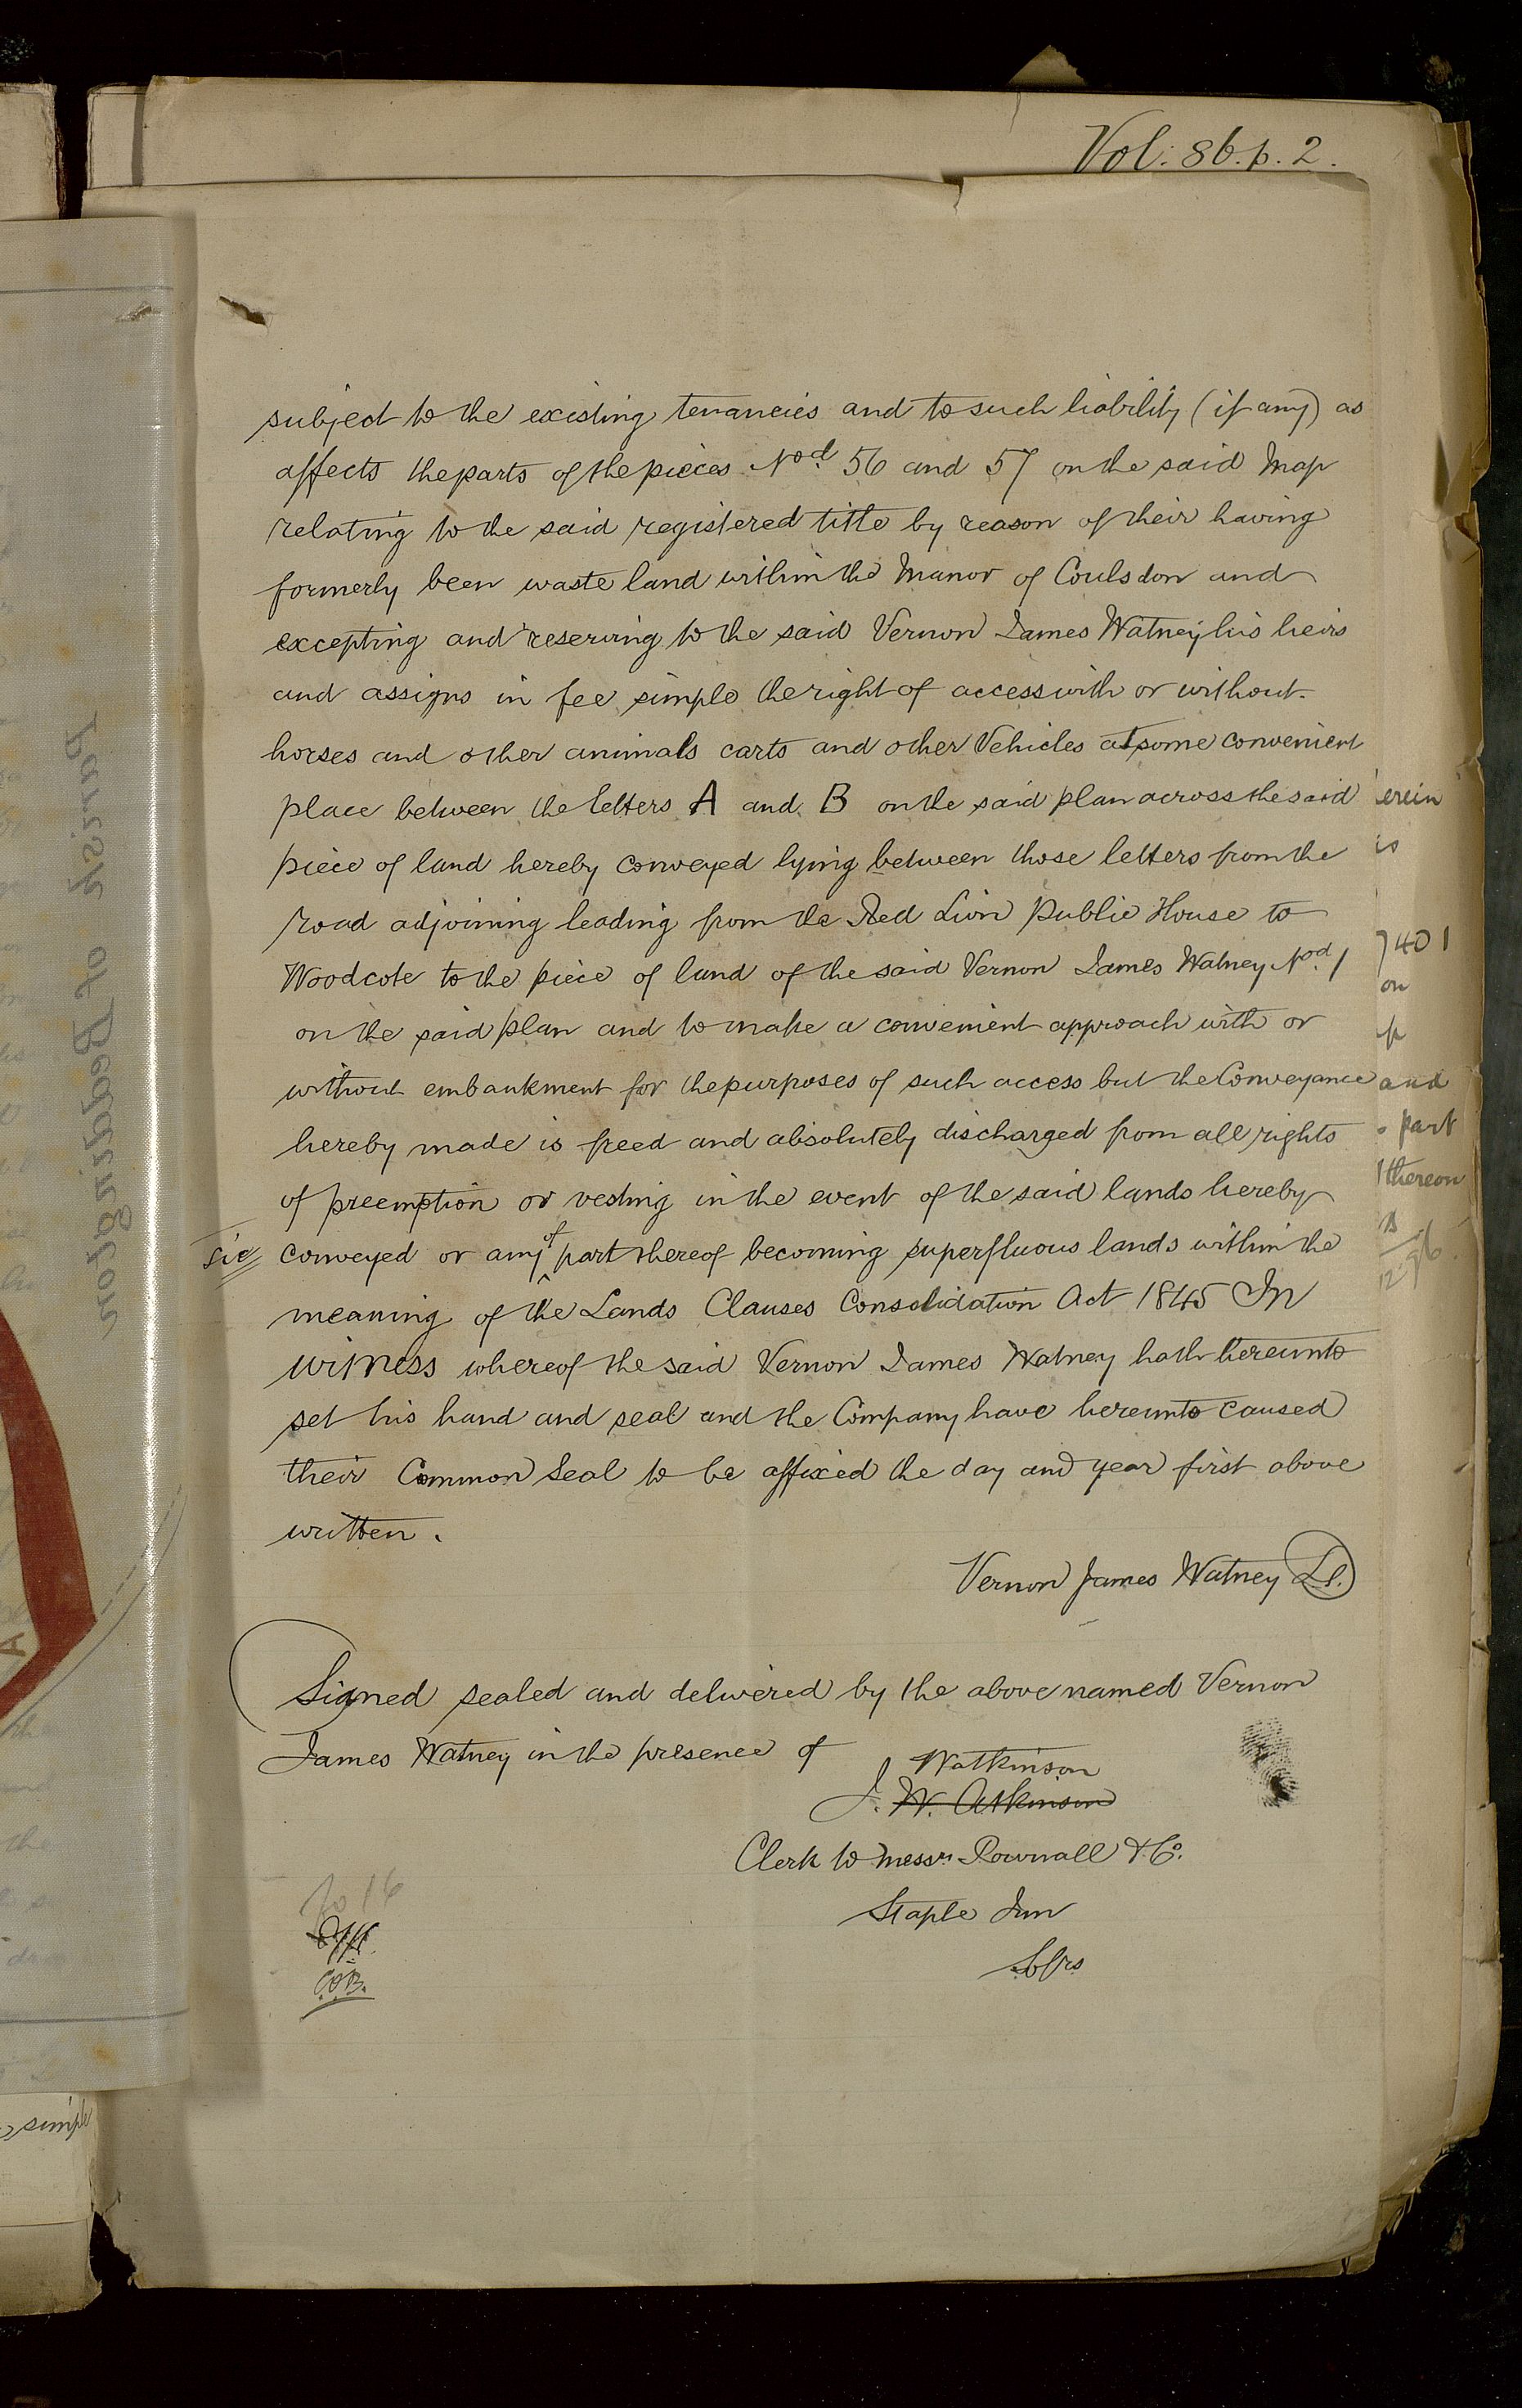 Vol: 86. p. 2.
subject to the existing tenancies and to such liability (if any) as
affects the parts of the pieces Nod. 56 and 57 on the said Map
relating to the said registered title by reason of their having
formerly been waste land within the Manor of Coulsdon and
excepting and reserving to the said Vernon James Watney his heirs
and assigns in fee simple the right of access with or without
horses and other animals carts and other Vehicles at some convenient
place between the letters A and B on the said plan across the said
piece of land hereby conveyed lying between those letters from the
road adjoining leading from the Red Lion Public House to
Woodcote to the piece of land of the said Vernon James Watney Nod. 1
on the said plan and to make a convenient approach with or
without embankment for the purposes of such access but the Conveyance
hereby made is freed and absolutely discharged from all rights
of preemption or vesting in the event of the said lands hereby
sic conveyed or any of part thereof becoming superfluous lands within the
meaning of the Lands Clauses Consolidation Act 1845 In
witness whereof the said Vernon James Watney hath hereunto
set his hand and seal and the Company have hereunto caused
their Common Seal to be affixed the day and year first above
written.
Vernon James Watney L.S.
Signed sealed and delivered by the above named Vernon
James Watney in the presence of
Watkinson
J. W. Atkinson
Clerk to Messrs. Pownall & Co.
Staple Inn
Solrs
fo 16
C.O.B.
erein
is
7401
on
and
part
thereon
Parish of Beddington
A
simple
the